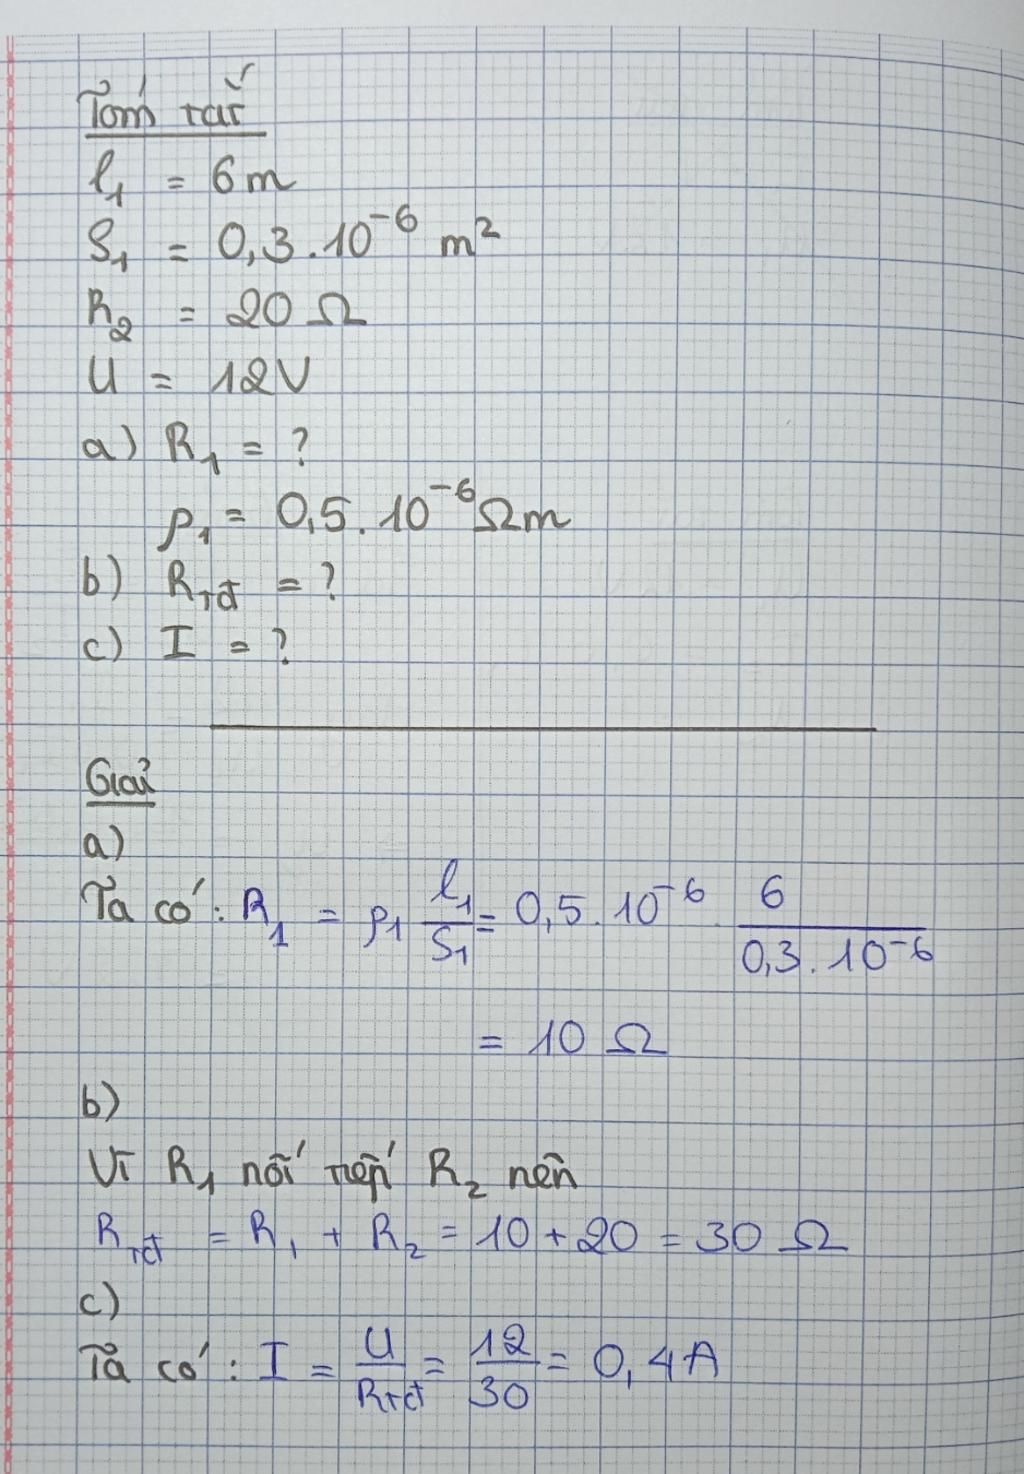 Tóm tắt
l₁ = 6m
S₁ = 0,3.10⁻⁶ m²
R₂ = 20 Ω
U = 12V
a) R₁ = ?
ρ₁ = 0,5.10⁻⁶ Ωm
b) Rtđ = ?
c) I = ?
Giải
a)
Ta có: R₁ = ρ₁ l₁/S₁ = 0,5.10⁻⁶ . 6/0,3.10⁻⁶
= 10 Ω
b)
Vì R₁ nối tiếp R₂ nên
Rtđ = R₁ + R₂ = 10 + 20 = 30 Ω
c)
Ta có: I = U/Rtđ = 12/30 = 0,4A